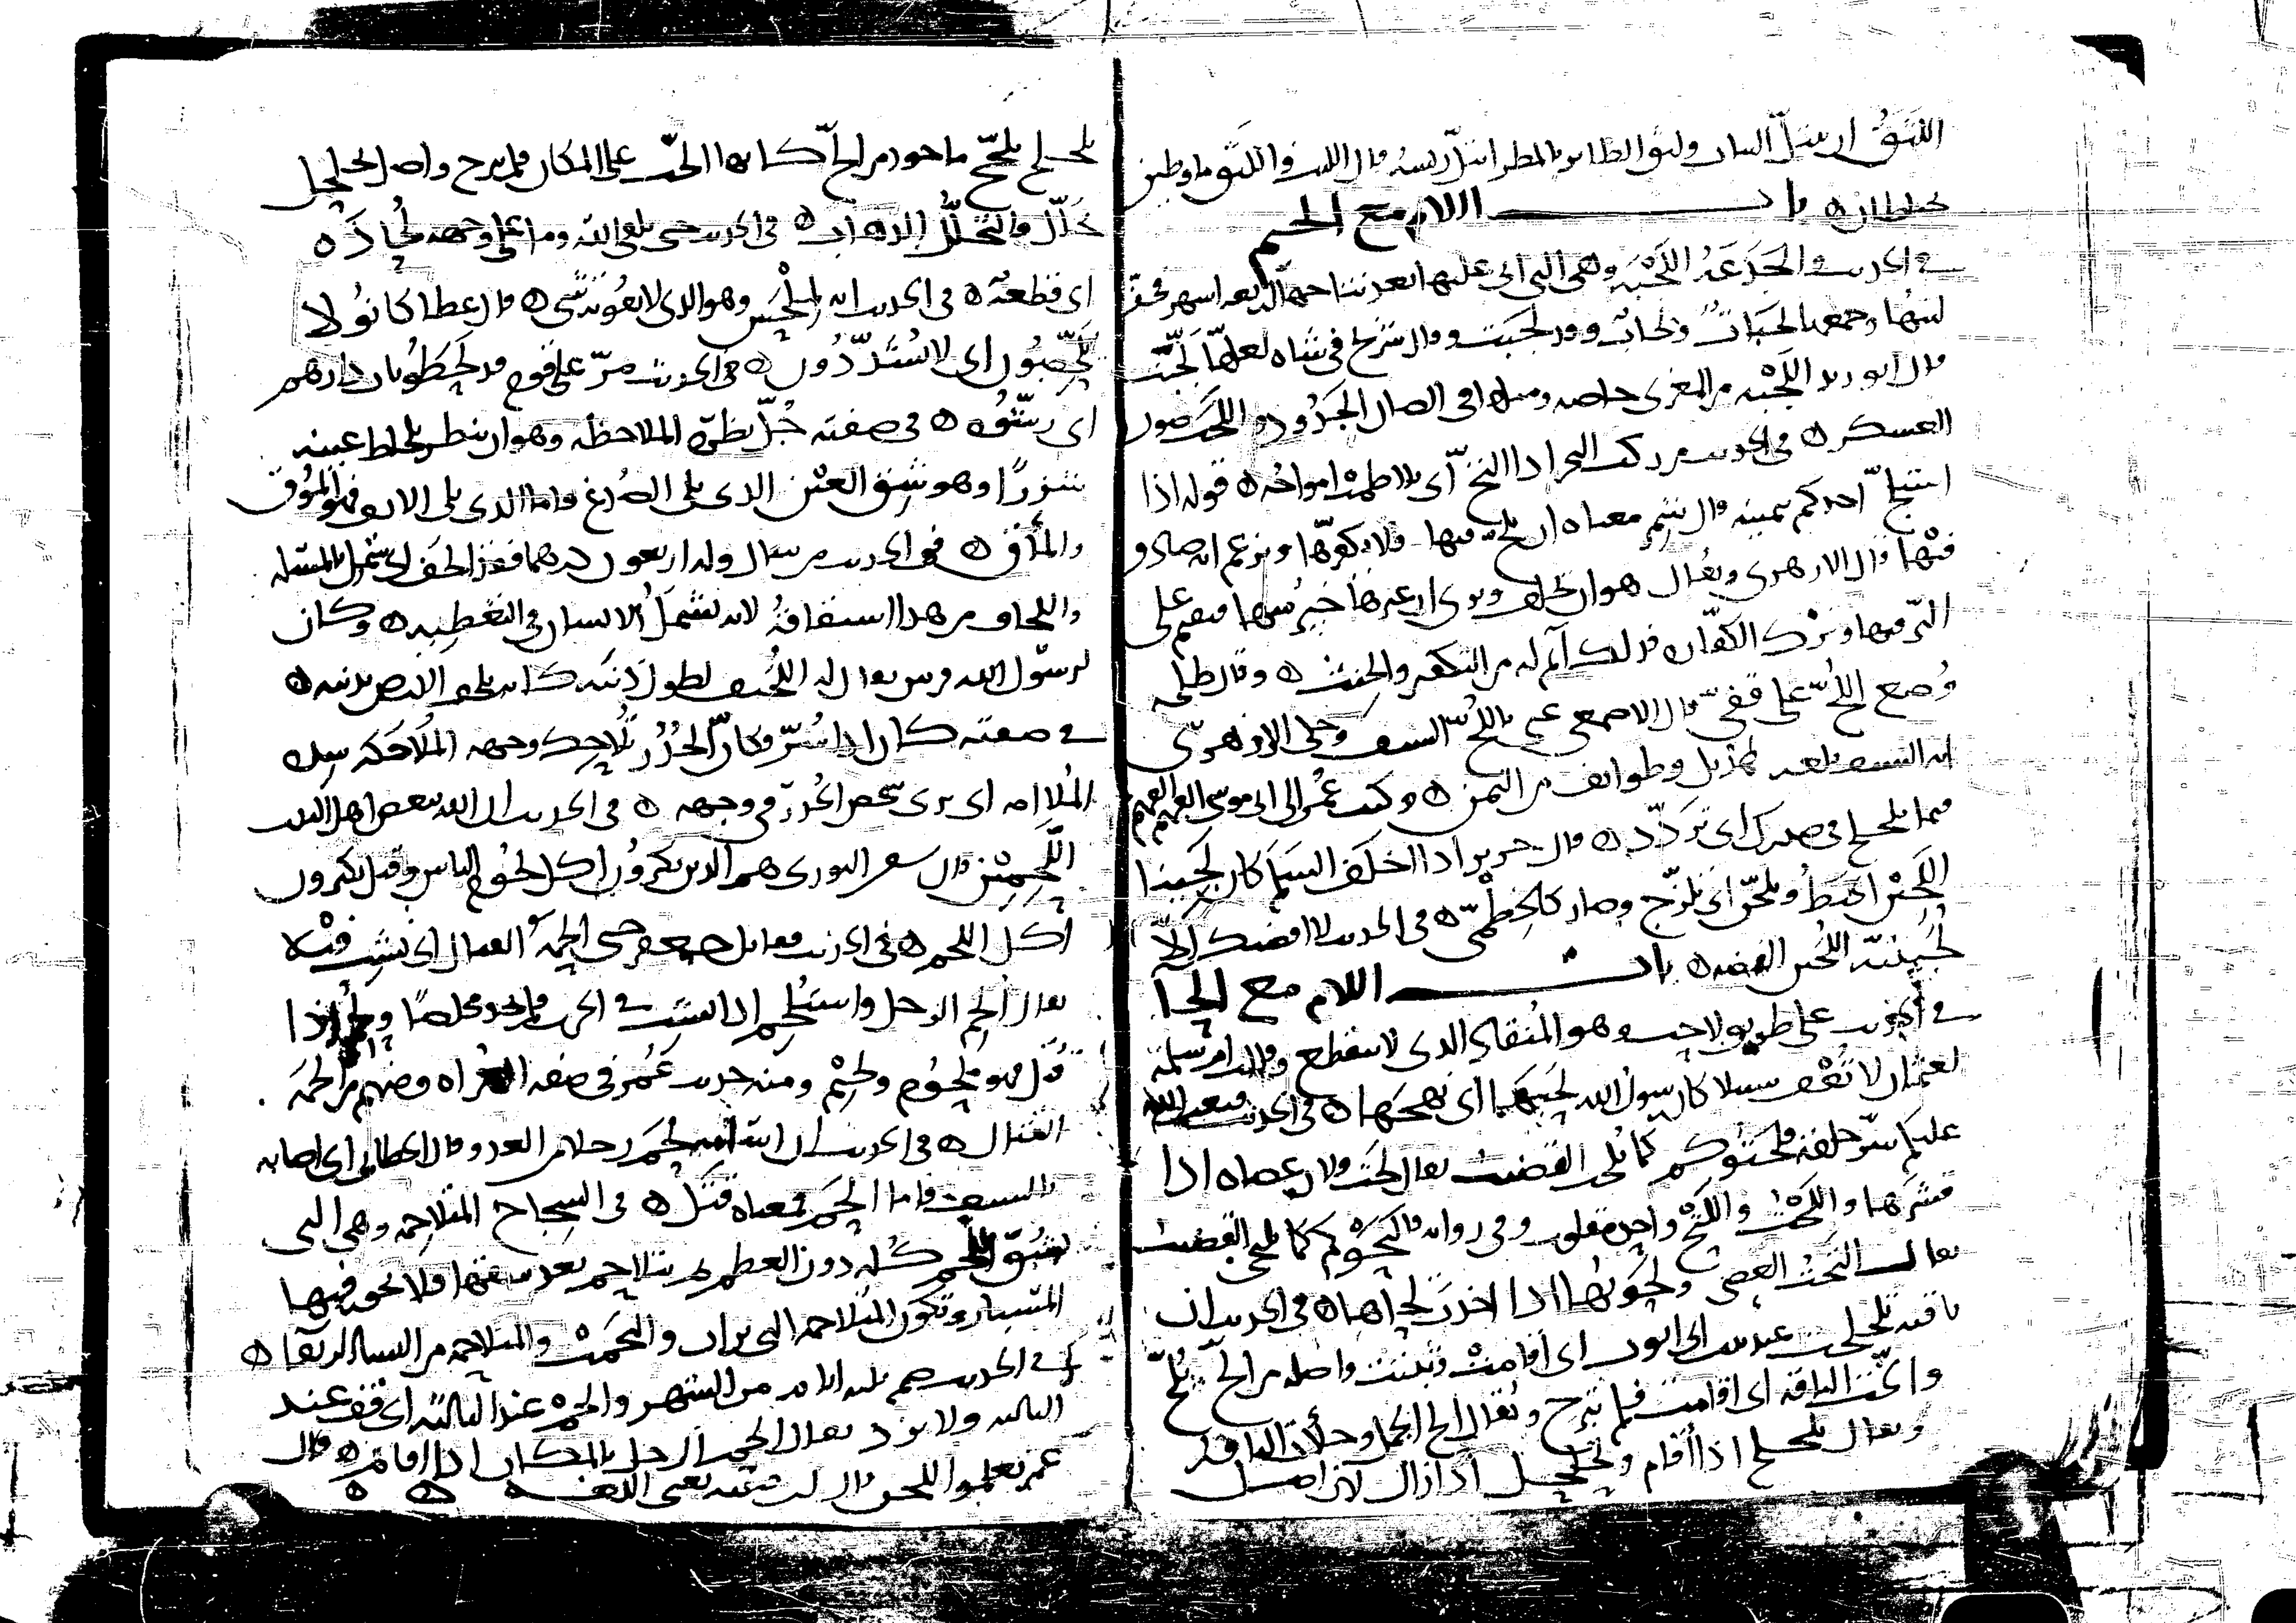 اللثق ان يبتل الثياب ولثق الطائر بالمطر ابتل ريشه قال الليث واللثق ما وطين
يختلطان ه باب اللام مع الجيم
في الحديث والجذعة اللجبة وهي التي اتى عليها بعد نتاجها اربعة اشهر فخف
لبنها وجمعها لجبات ولجاب وقد لجبت وقال شريح في شاه لعلها لجبت
قال ابو زيد اللجبة من المعزى خاصة ومثلها في الضان الجدود واللجب صوت
العسكر ه في الحديث من ركب البحر اذا التج اي تلاطمت امواجه ه قوله اذا
استلج احدكم بيمينه قال شمر معناه ان يلج فيها فلا يكفرها ويزعم انه صادق
فيها قال الازهري ويقال هو ان يحلف ويرى ان غيرها خير منها فيقيم على
البر فيها وترك الكفارة فذلك آثم له من التكفير والحنث ه وقال طلحة
وضع اللج على قفي قال الاصمعي عنى باللج السيف وحكى الازهري
ان السيف بلغه هذيل وطوايف من اليمن ه وكتب عمر الى ابي موسى الفهم الفهم
فيما تلجلج في صدرك اي تردد ه قال جرير اذا اخلف السلم كان لجينا
اللجين الخبط وتلجن اي تلزج وصار كالخطمي ه في الحديث لا اقضيك الا
لجينية اللجين الفضة ه باب اللام مع الحا
في الحديث على طريق لاحب وهو المنقاد الذي لا ينقطع وقالت ام سلمة
لعثمان لا تعف سبيلا كان رسول الله لحبها اي نهجها ه في الحديث فيبعث الله
عليكم شر خلقه فلحتوكم كما يلحت القضيب يقال لحت فلان عصاه اذا
قشرها واللحت واللتح واحد مقلوب وفي رواية فالتحوكم كما يلتحى القضيب
يقال التحيت العصى ولحوتها اذا اخذت لحاها ه في الحديث ان
ناقته تلحلحت عند بيت ابي ايوب اي اقامت وثبتت واصله من الح يلح
والحت الناقة اي اقامت فلم تبرح ويقال الح الجمل وخلات الناقة
ويقال تلحلح اذا اقام وتحلحل اذا زال لان اصل
تلحلح تلحح ماخوذ من الح كانها الحت على المكان فلم تبرح واصل تحلحل
تحلل والتحلل الذهاب ه في الحديث حتى يلقى الله وما على وجهه لحادة
اي قطعة ه في الحديث انه لملحس وهو الذي لا يفوته شي ه قال عطا كانوا لا
يلحصون اي لا يشددون ه في الحديث مر على قوم قد لحطوا باب دارهم
اي رشوه ه في صفته جل نظره الملاحظة وهو ان ينظر بلحاظ عينه
شزرا وهو شق العين الذي يلي الصدغ واما الذي يلي الانف فهو الموق
والماق ه في الحديث من سال وله اربعون درهما فقد الحف اي شمل بالمسئلة
واللحاف من هذا اشتقاقه لانه يشمل الانسان في التغطية ه وكان
لرسول الله فرس يقال له اللحيف لطول ذنبه كانه يلحف الارض بذنبه ه
في صفته كان اذا سر وكان الجدر تلاحك وجهه الملاحكة مثل
الملامة اي يرى شخص الجدر في وجهه ه في الحديث ان الله يبغض اهل البيت
اللحمين قال سفين الثوري هم الذين يكثرون اكل لحوم الناس وقيل يكثرون
اكل اللحم ه في الحديث فقاتل جعفر حتى الحمه القتال اي نشب فيه
يقال الحم الرجل واستلحم اذا نشب في الحرب فلم يجد مخلصا ولحم اذا
قتل فهو ملحوم ولحيم ومنه حديث عمر في صفة الغزاة ومنهم من الحمه
القتال ه في الحديث ان اسامة لحم رجلا من العدو قال الخطابي اي اصابه
بالسيف فاما الحم فمعناه قتل ه في الشجاج المتلاحمة وهي التي
تشق اللحم كله دون العظم ثم تتلاحم بعد شقها فلا يجوز فيها
المسبار وتكون المتلاحمة التي برات والتحمت والمتلاحمة من النساء الرتقا ه
في الحديث صم ثلثة ايام من الشهر والحم عند الثالثة اي قف عند
الثالثة ولا يزد يقال الحم الرجل بالمكان اذا اقام ه قال
عمر تعلموا اللحن قال ابن قتيبة يعني اللغة ه ه